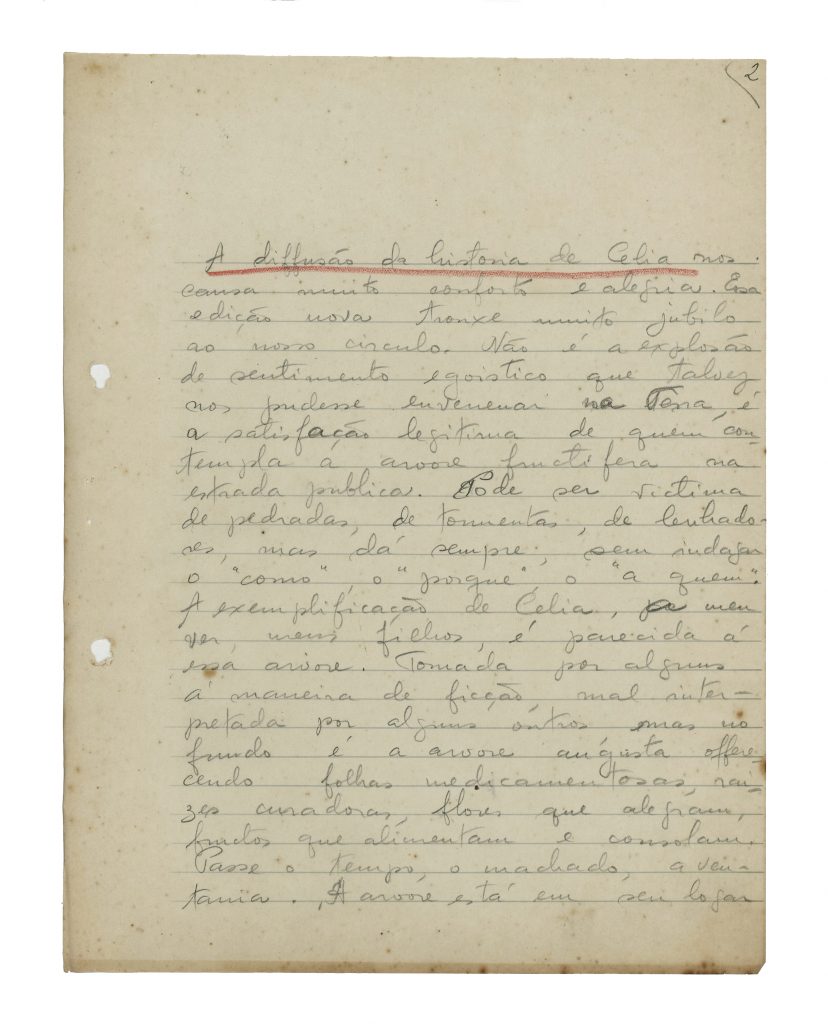 2
A diffusão da historia de Celia nos
causa muito conforto e alegria. Essa
edição nova trouxe muito jubilo
ao nosso circulo. Não é a explosão
de sentimento egoistico que talvez
nos pudesse envenenar na Terra, é
a satisfação legitima de quem con-
templa a arvore fructifera na
estrada publica. Póde ser victima
de pedradas, de tormentas, de lenhado-
res, mas dá sempre, sem indagar
o "como", o "porque", o "a quem".
A exemplificação de Celia, a meu
ver, meus filhos, é parecida á
essa arvore. Tomada por alguns
á maneira de ficção, mal inter-
pretada por alguns outros mas no
fundo é a arvore augusta offere-
cendo folhas medicamentosas, rai-
zes curadoras, flores que alegram,
fructos que alimentam e consolam.
Passe o tempo, o machado, a ven-
tania. A arvore está em seu logar